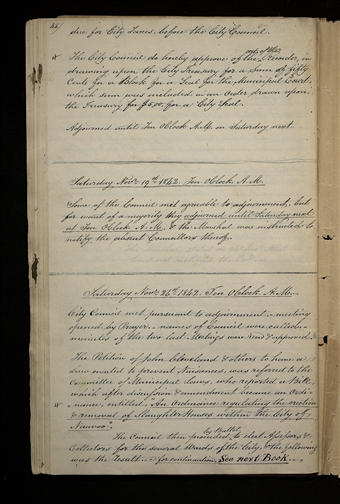 due for City Taxes, before the City Council.
The City Council do hereby approve of the act of the Recorder, in
drawing upon the City Treasury for a Sum of fifty
Cents for a Block for a Seal for the Municipal Court,
which sum was included in an Order drawn upon
the Treasury for $5,00, for a City Seal.
Adjourned until Ten O'Clock A.M. on Saturday next.
Saturday Novr. 19th 1842. Ten O'Clock A.M.
Some of the Council met agreeable to adjournment, but
for want of a majority they adjourned until Saturday next
at Ten O'Clock A.M. & the Marshal was instructed to
notify the absent Councillors thereof.
Saturday Novr. 26th 1842. Ten O'Clock A.M.
City Council met pursuant to adjournment - meeting
opened by Prayer - names of Council were called -
minutes of the two last Meetings was read & approved.
The Petition of John Cleveland & others to have a
due enacted to prevent Nuisances, was referred to the
Committee of Municipal Laws, who reported a Bill,
which after discussion & amendment became an Ordi-
nance, entitled "An Ordinance regulating the erection
& removal of Slaughter Houses within the City of
Nauvoo".
The Council then proceeded by Ballot to elect Assessors &
Collectors for the several Wards of the City, & the following
was the result - for continuation, See next Book -